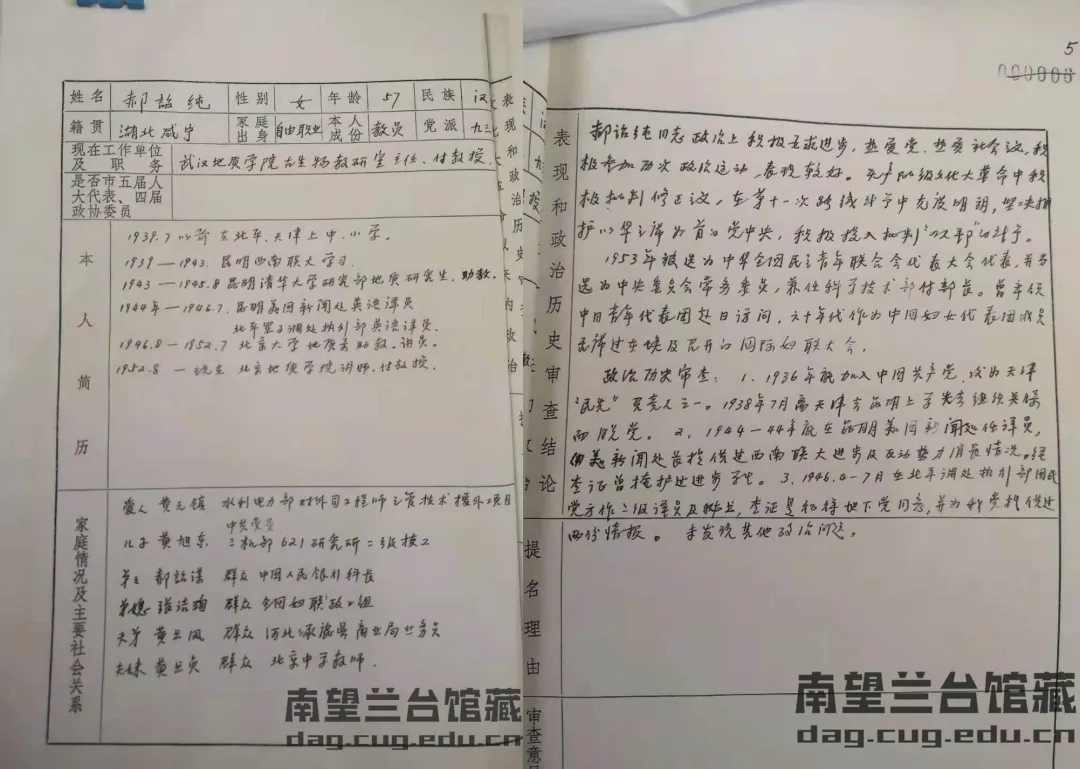 姓名 郝詒纯 性别 女 年龄 57 民族 汉
籍贯 湖北咸宁 家庭出身 自由职业 本人成份 教员 党派 九三
现在工作单位及职务 武汉地质学院古生物教研室主任、付教授.
是否市五届人大代表、四届政协委员
本人简历
1939.7以前在北平、天津上中、小学。
1939—1943. 昆明西南联大学习.
1943—1945.8 昆明清华大学研究部地质研究生、助教.
1944年—1946.7. 昆明美国新闻处英语译员
北平军子调处执行部英语译员.
1946.8—1952.7 北京大学地质系助教.讲员。
1952.8—现在 北京地质学院讲师.付教授.
家庭情况及主要社会关系
爱人 黄元镇 水利电力部对外司工程师主管技术援外工项目
中共党员
儿子 黄旭东 三机部621研究所二级技工
弟弟 郝詒谋 群众 中国人民银行科长
弟媳 张洁珣 群众 全国妇联政工组
夫弟 黄立凤 群众 河北涿鹿县商业局业务员
夫妹 黄立贞 群众 北京中学教师.
南望兰台馆藏
dag.cug.edu.cn
表现和政治历史
5
000000
表现和政治历史审查结论
郝诒纯同志政治上积极要求进步,热爱党、热爱社会主义,积
极参加历次政治运动,表现较好。无产阶级文化大革命中积
极批判修正主义,在第十一次路线斗争中态度明朗,坚决拥
护以华主席为首的党中央,积极投入批判“四人帮”的斗争。
1953年被选为中华全国民主青年联合会代表大会代表,并当
选为中央委员会常务委员,兼任科学技术部付部长。曾率领
中日青年代表团赴日访问,六十年代作为中国妇女代表团成员
出席过在埃及召开的国际妇联大会.
政治历史审查:1.1936年就加入中国共产党,该为天津
“民先”负责人之一。1938年7月离天津去昆明上学失去组织关系
而脱党。2.1944—44年底在昆明美国新闻处任译员,
向美新闻处长提供过西南联大进步及反动势力消长情况。经
查证曾掩护过进步学生。3.1946.4—7月在北平调处执行部国民
党方作二级译员及秘书,查证是征得地下党同意,并为我党提供过
两份情报。未发现其他政治问题。
提名理由
审查意见
南望兰台馆藏
dag.cug.edu.cn